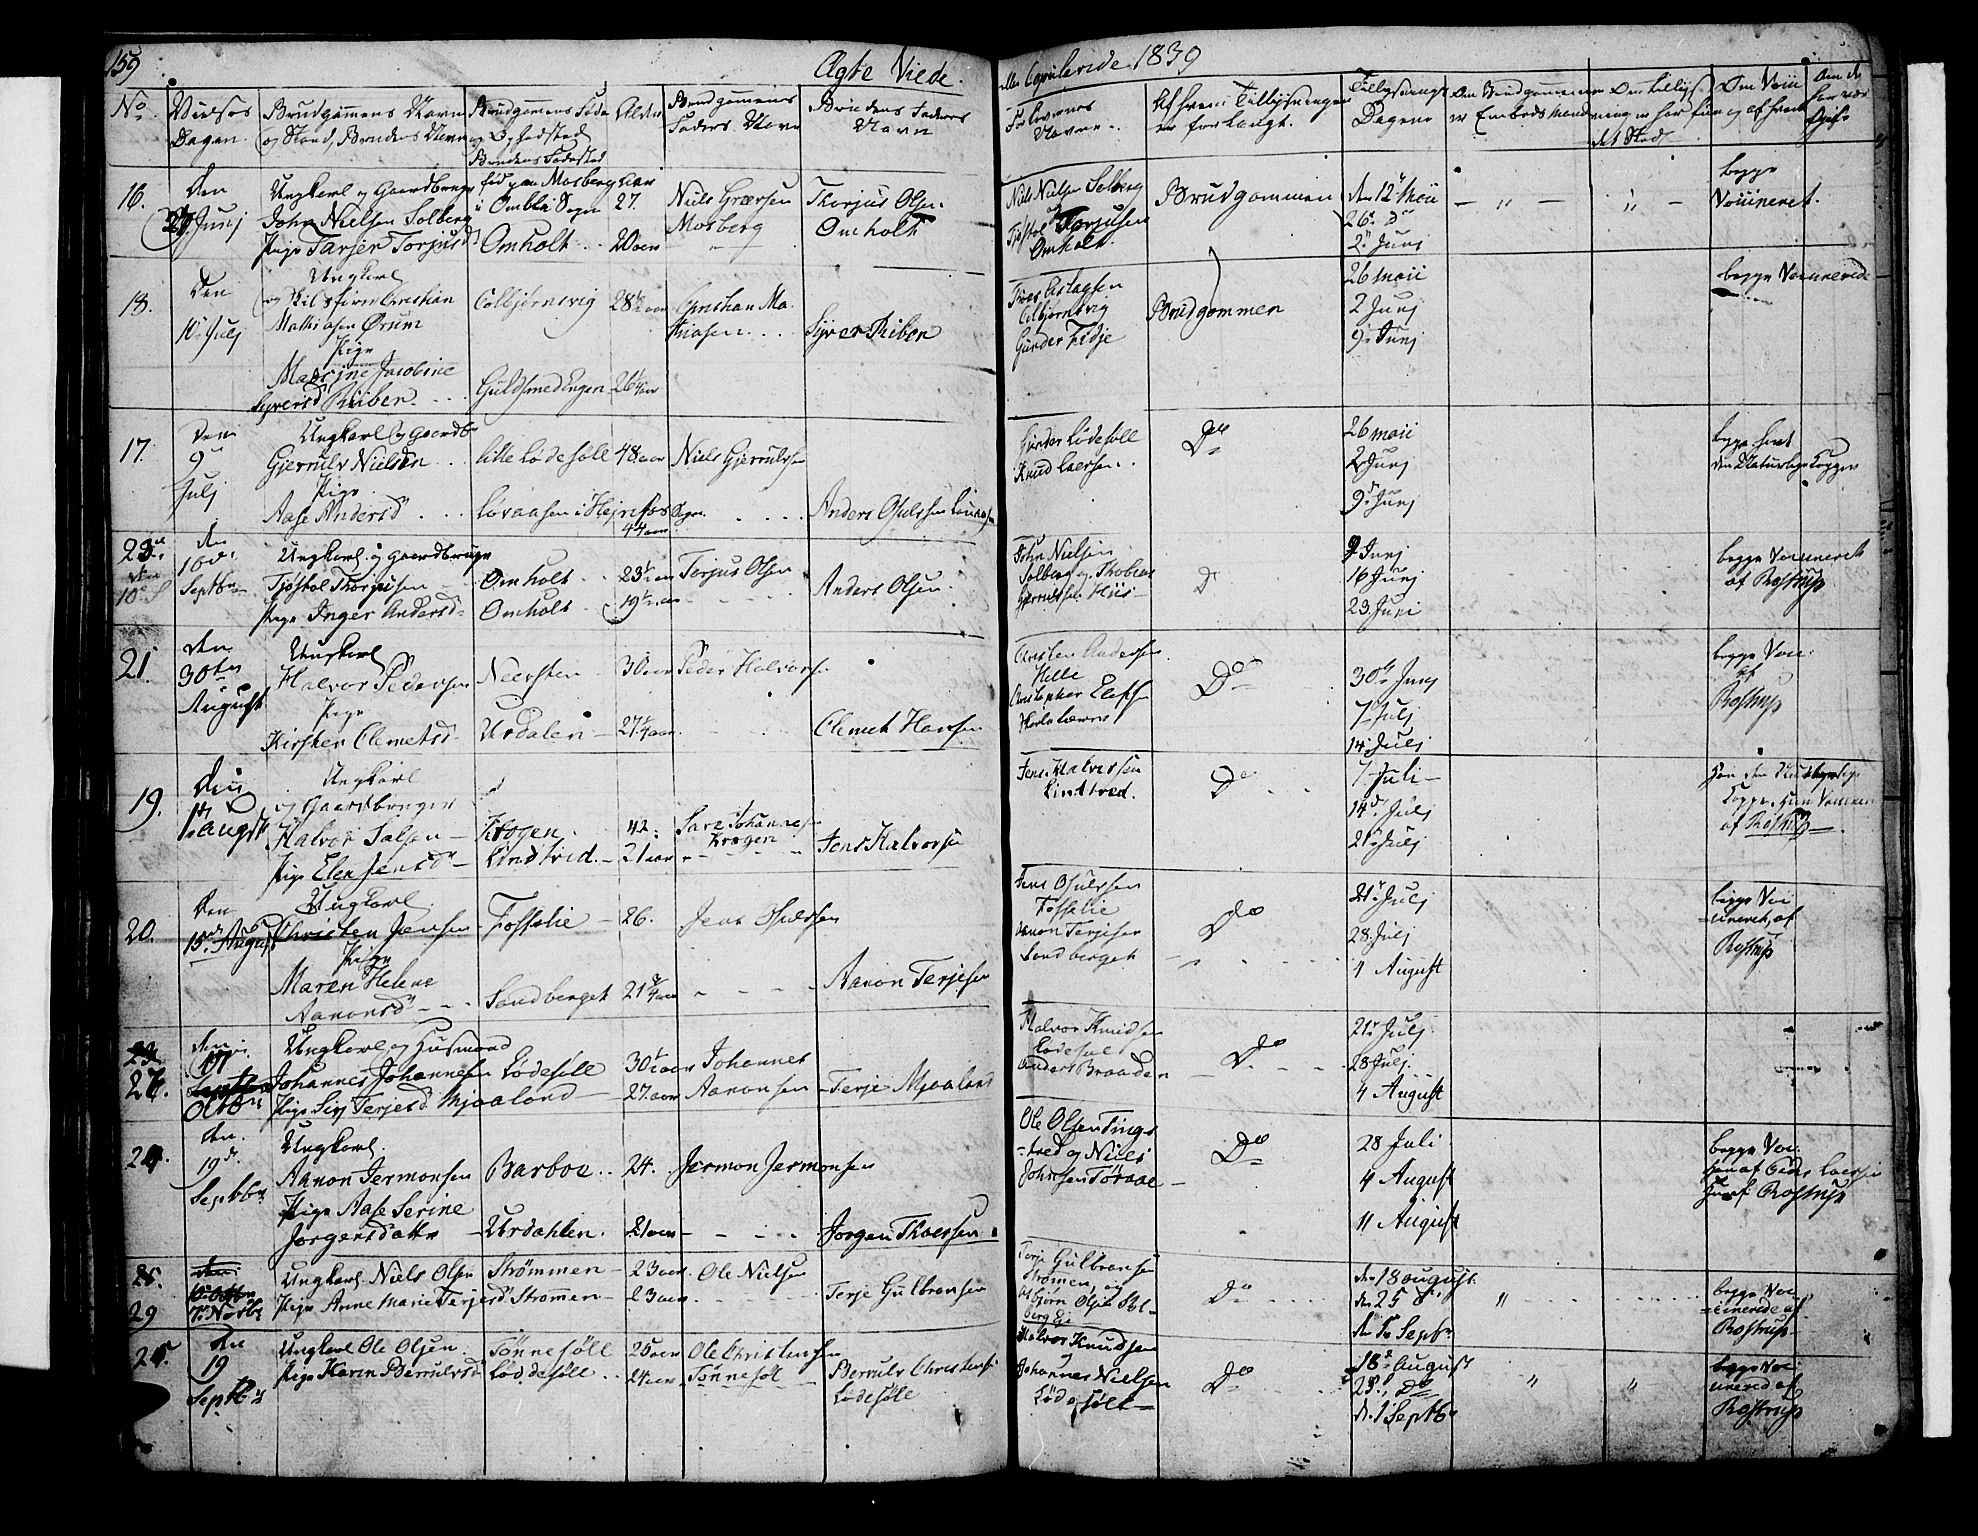 159
Ægte Viede
eller Copulerede 1839
No
Vielses
Dagen
Brudgommens Navn
og Stand, Brudens Navn
Brudgommens Føde
og Opholdsted
Brudens Fødested
Alder
Brudgommens
Faders Navn
Brudens Faders
Navn
Forlovernes
Navne
Af hvem Tillysningen
er forlangt.
Tillysnings
Dagene
Om Brudgommen
er Embedsmand
det Sted
16.
den
27 Junj
Ungkarl og Gaardbruger
John Nielsen Solberg
Pige Tarjer Torjusd
fød paa Mosberg
i Ombli Sogn
Omholt
27
20 aar
Niels Greersen
Mosberg
Thorjus Olsen
Omholt
Niels Nielsen Solberg
Tjøstol Torjusen
Omholt
Brudgommen
den 12te Maii
26de do
2den Junj
begge
Vaccineret.
18.
Den
10de Julj
Ungkarl
Christian
Mathiasen Ørum
Pige
Jacobine
Syversd Riiber
Colbjørnsvig
Guldsmedengen
28½ aar
26¼ aar
Christian Ma
thiasen
Syver Riiber
Tives Aslagsen
Colbjørnsvig
Gunder Fedje
Brudgommen
26 maii
2 Junj
9de Junj
begge Vaccinerede
17.
Den
9de
Julj
Ungkarl og Gaardb
Gjerrulv Nielsen
Pige
Aase Andersd
lille Lødesøll
48 aar
44 aar
Niels Gjerrulvsen
Gunder Lødesøll
Knud Larsen
Do
26 maii
2 Junj
9de Junj
begge havt
den Naturlige Kopper
23
den
10de S
den
10de
Septbr
Ungkarl og Gaardbruger
Tjøstol Thorjusen
Pige Inger Andersd
Omholt
Omholt
23½ aar
19½ aar
Torjus Olsen
Anders Olsen
John Nielsen
Solberg og Thobias
Gjerrulsen Huus
D
9 Junj
16 Junj
23 Juni
begge Vaccineret
af Rostrup
21.
den
30te
August
Ungkarl
Halvor Pedersen
Pige
Kirsten Clemetsd
Neersten
Urdalen
30 aar
27¼ aar
Peder Halvorsen
Clemet Hansen
Christen Andersen
Hille
Christopher Elefsen
Do
30te Junj
7 Julj
14 Julj
begge Vac.
af
Rostrup
19.
Den
1te Augst
Ungkarl
og Gaardbruger
Halvor Salsen
Pige Elen Jensd
Krogen
Lindtved
42
21 aar
Johannesen
Krogen
Jens Halvorsen
Jens Halvorsen
Lindtved.
Do
7 Juli
14de Julj
21de Julj
han den Naturlige
Kopper hun Vaccineret
af Rostrup
20.
Den
15de August
Ungkarl
Christen Jensen
Pige
Maren Helene
Aanonsd
Fosselie
Sandberget
26.
21¾ aar
Jens Osulvsen
Aanon Terjesen
Jens Osulvsen
Fosselie
Aanon Terjesen
Sandberget
Do
21de Julj
28 Julj
4 August
begge Vac
cineret af
Rostrup
27.
den
17
Octbr
Ungkarl og Husmand
Johannes Johannesen
Pige Siri Terjesd Mjaaland
Lødesøll
30½ aar
27 aar
Johannes
Aanonsen
Terje Mjaaland
Halvor Knudsen
Lødesøl
Anders Braaden
Do
21de Julj
28 Julj
4 August
24.
den
19de
Septbr
Ungkarl
Aanon Jermonsen
Pige Aase Serine
Jorgensdatter
Barboe
Urdahlen
24.
21 aar
Jermon Jermonsen
Jorgen Thoersen
Ole Olsen Tings
tved og Niels
Johnsen Toraae
Do
28 Juli
4 August
11 August
begge Vac.
han af Peder Larsen
hun af Rostrup
29
7de Novbr
Ungkarl Niels Olsen
Pige Anne Marie Terjesd
Strømmen
Strømmen
23 aar
23 aar
Ole Nielsen
Terje Gulbransen
Terje Gulbransen
Strømen og
Asbjørn Olsen
Do
den 18 august
den 25 do
den 1te Septbr
begge Vac
cinerede af
Rostrup
25.
den
19
Septbr
Ungkarl Ole Olsen
Pige Karen Berrulvsd
Tønnesøll
Lødesøll
25 aar
24 aar
Ole Christensen
Tønnesøl
Berrulv Christens
Lødesøll
Halvor Knudsen
og
Johannes Nielsen
Lødesøll
Do
18de August
25de Do
d. 1 Septbr
begge Vac
cinered af
Rostrup